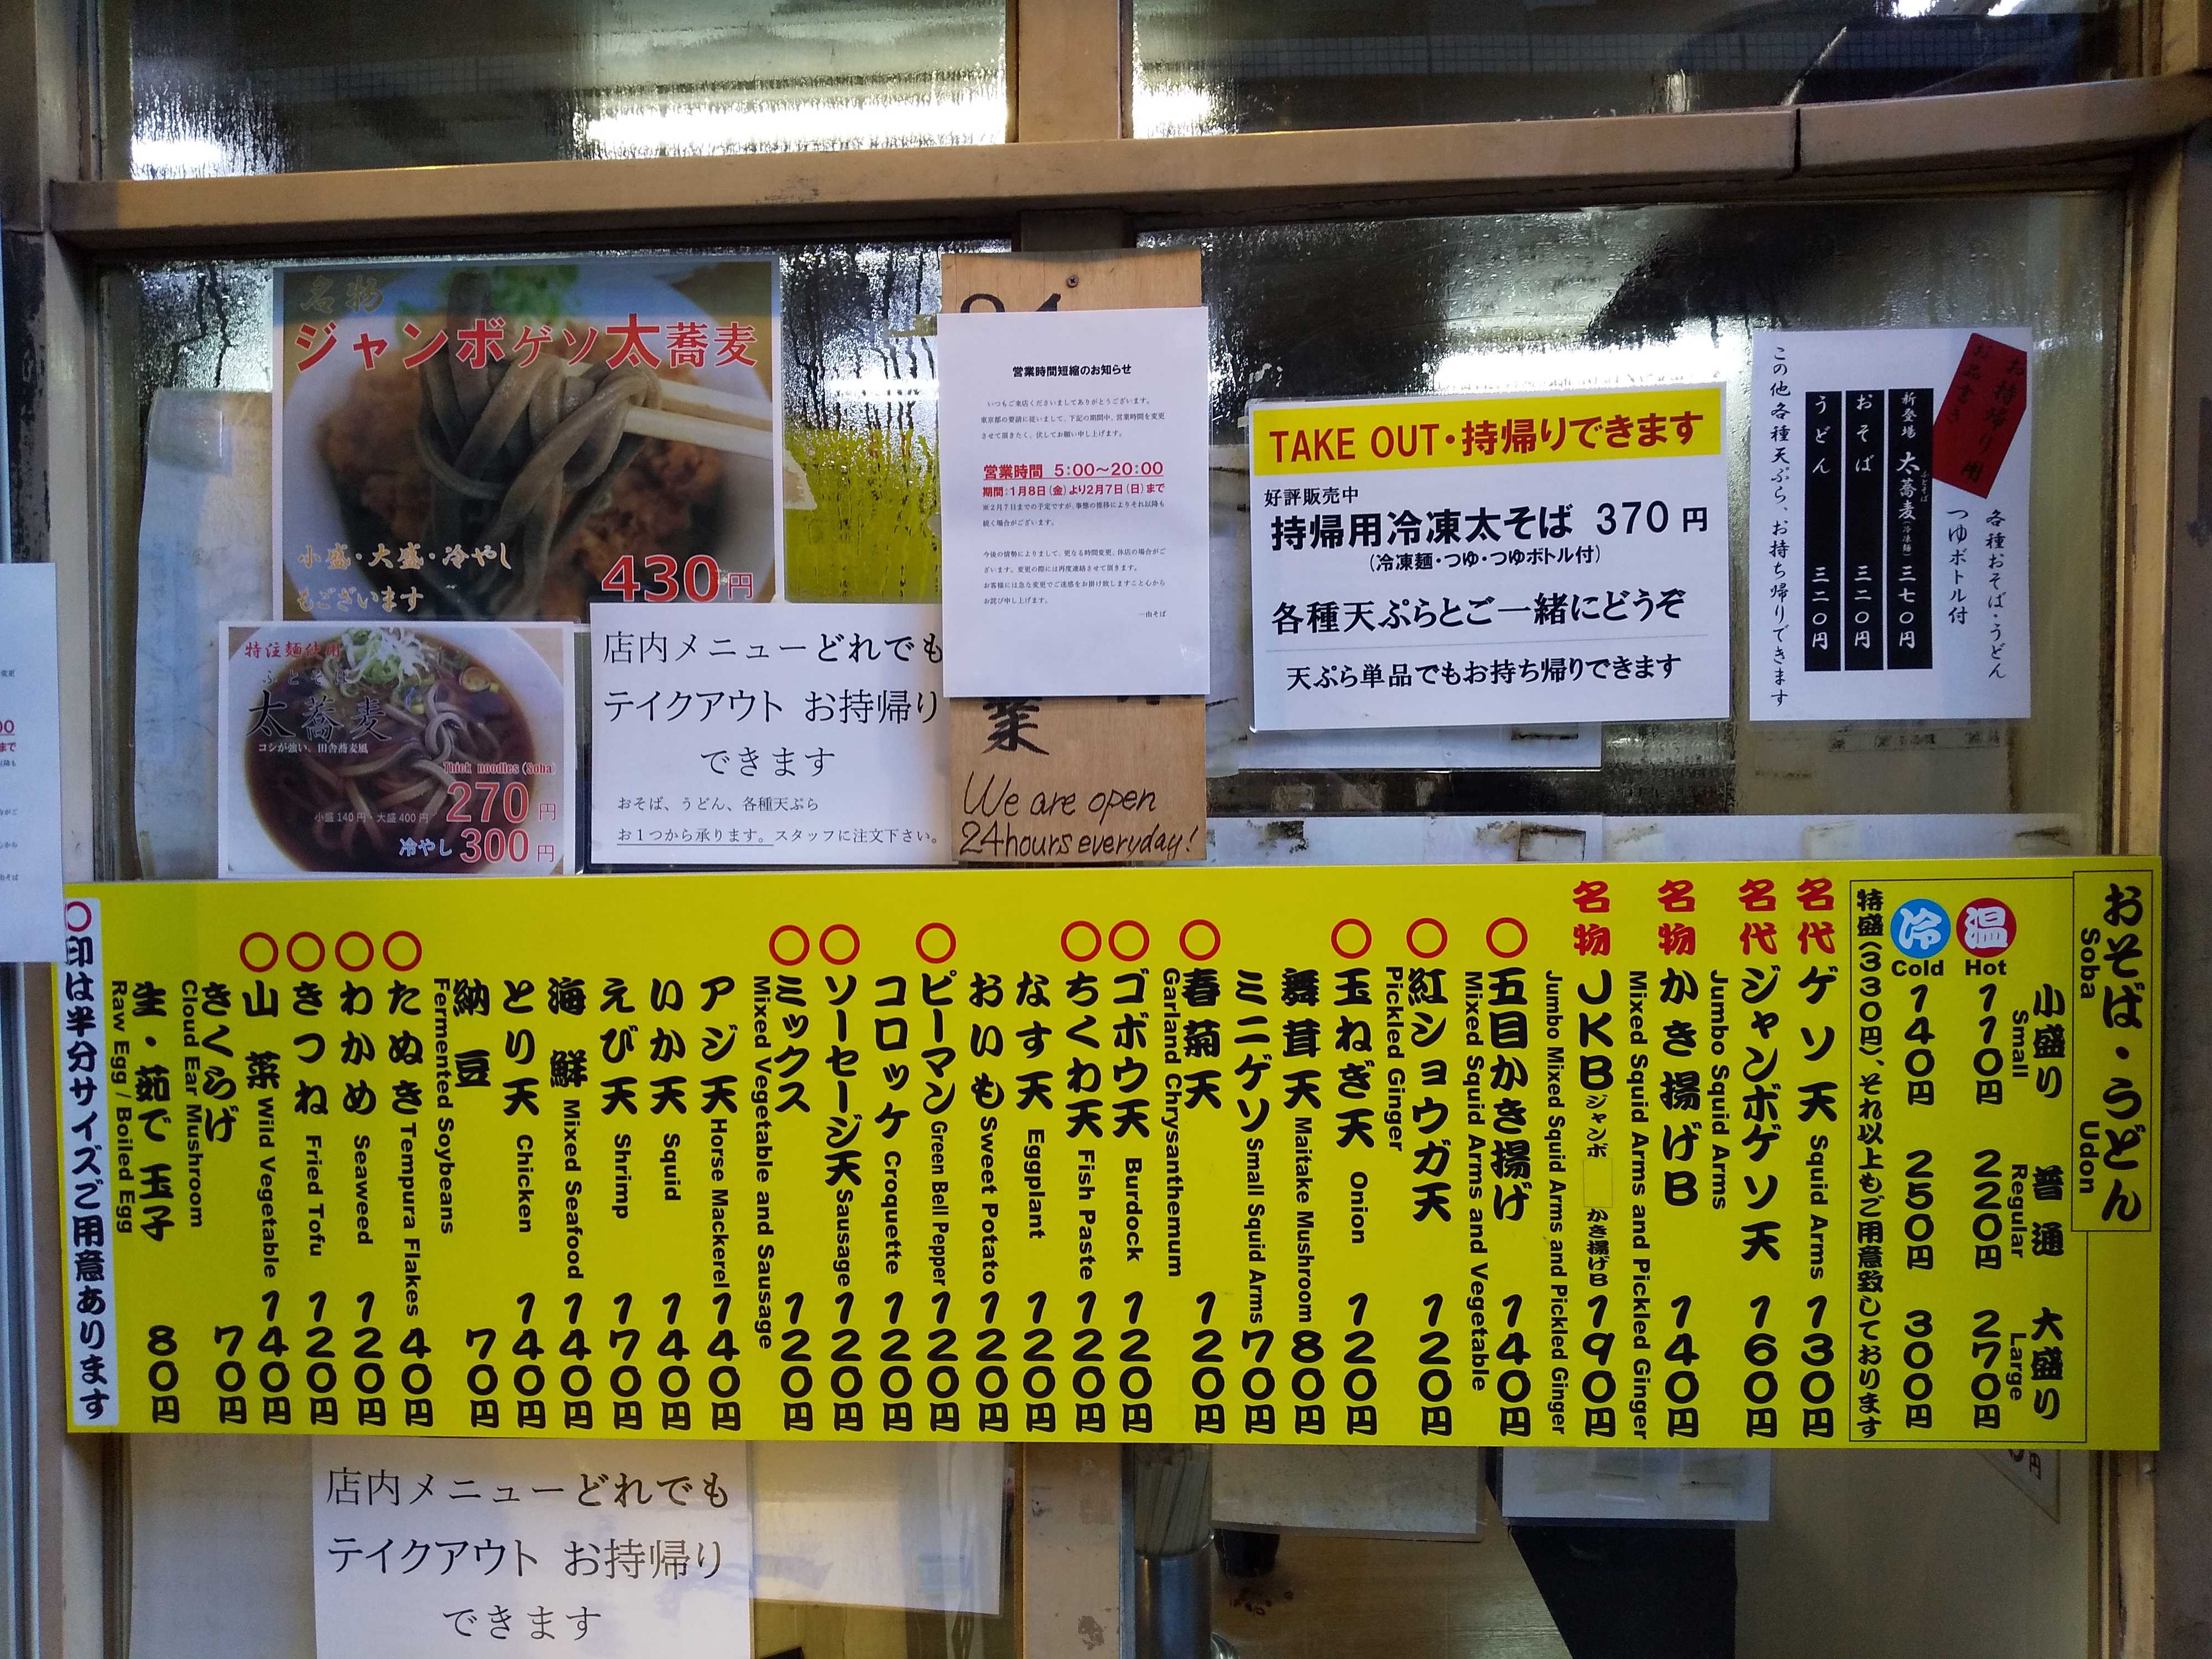 名物
ジャンボゲソ太蕎麦
小盛・大盛・冷やし
もございます
430円
特注麺使用
ふとそば
太蕎麦
コシが強い、田舎蕎麦風
Thick noodles (Soba)
270円
小盛140円・大盛400円
冷やし 300円
店内メニューどれでも
テイクアウト お持帰り
できます
おそば、うどん、各種天ぷら
お1つから承ります。スタッフに注文下さい。
営業時間短縮のお知らせ
いつもご来店くださいましてありがとうございます。
東京都の要請に従いまして、下記の期間中、営業時間を変更
させて頂きたく、伏してお願い申し上げます。
営業時間 5:00〜20:00
期間:1月8日(金)より2月7日(日)まで
※2月7日までの予定ですが、事態の推移によりそれ以降も
続く場合がございます。
今後の情勢によりまして、更なる時間変更、休店の場合がご
ざいます。変更の際には再度連絡させて頂きます。
お客様には急な変更でご迷惑をお掛け致しますこと心から
お詫び申し上げます。
一由そば
業
We are open
24hours everyday!
TAKE OUT・持帰りできます
好評販売中
持帰用冷凍太そば 370円
(冷凍麺・つゆ・つゆボトル付)
各種天ぷらとご一緒にどうぞ
天ぷら単品でもお持ち帰りできます
お持帰り用
お品書き
各種おそば・うどん
つゆボトル付
新登場 太蕎麦(冷凍麺) 三七〇円
ふとそば
おそば 三二〇円
うどん 三二〇円
この他各種天ぷら、お持ち帰りできます
おそば・うどん
Soba Udon
小盛り 普通 大盛り
Small Regular Large
温 Hot 110円 220円 270円
冷 Cold 140円 250円 300円
特盛(330円)、それ以上もご用意致しております
名代 ゲソ天 Squid Arms 130円
名代 ジャンボゲソ天 160円
Jumbo Squid Arms
名物 かき揚げB 140円
Mixed Squid Arms and Pickled Ginger
名物 JKB ジャンボ かき揚げB 190円
Jumbo Mixed Squid Arms and Pickled Ginger
○ 五目かき揚げ 140円
Mixed Squid Arms and Vegetable
○ 紅ショウガ天 120円
Pickled Ginger
○ 玉ねぎ天 Onion 120円
舞茸天 Maitake Mushroom 80円
ミニゲソ Small Squid Arms 70円
○ 春菊天 120円
Garland Chrysanthemum
○ ゴボウ天 Burdock 120円
○ ちくわ天 Fish Paste 120円
なす天 Eggplant 120円
おいも Sweet Potato 120円
○ ピーマン Green Bell Pepper 120円
コロッケ Croquette 120円
○ ソーセージ天 Sausage 120円
○ ミックス 120円
Mixed Vegetable and Sausage
アジ天 Horse Mackerel 140円
いか天 Squid 140円
えび天 Shrimp 170円
海鮮 Mixed Seafood 140円
とり天 Chicken 140円
納豆 70円
Fermented Soybeans
○ たぬき Tempura Flakes 40円
○ わかめ Seaweed 120円
○ きつね Fried Tofu 120円
○ 山菜 Wild Vegetable 140円
きくらげ 70円
Cloud Ear Mushroom
生・茹で玉子 80円
Raw Egg / Boiled Egg
○印は半分サイズご用意あります
店内メニューどれでも
テイクアウト お持帰り
できます